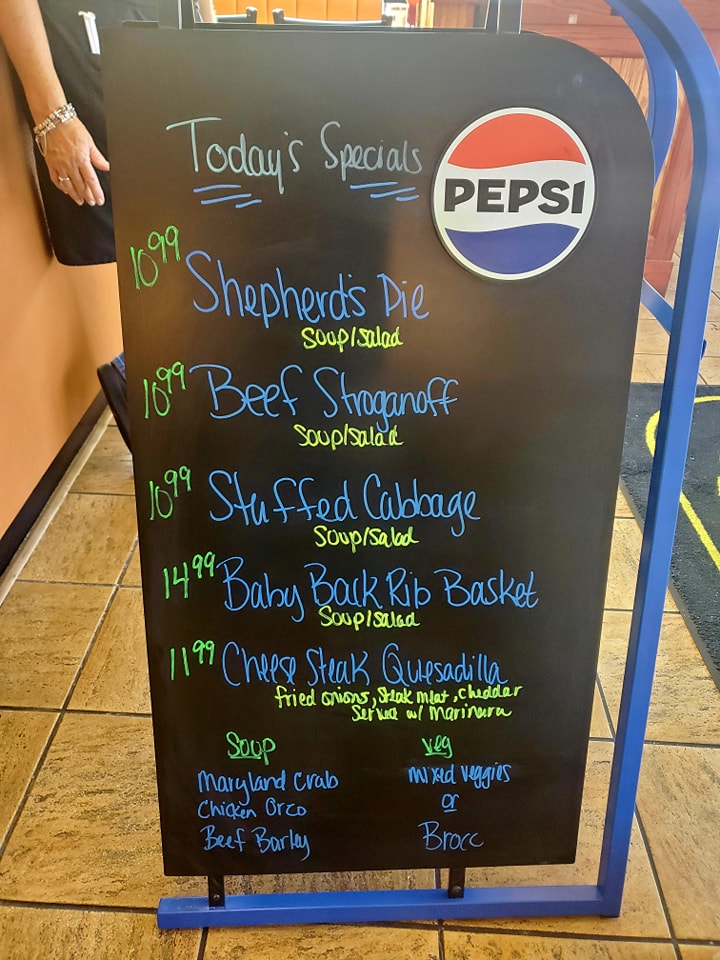 Today's Specials
PEPSI
10.99 Shepherd's Pie
Soup/Salad
10.99 Beef Stroganoff
Soup/Salad
10.99 Stuffed Cabbage
Soup/Salad
14.99 Baby Back Rib Basket
Soup/Salad
11.99 Cheese Steak Quesadilla
fried onions, Steak meat, cheddar
Served w/ Marinara
Soup
Maryland Crab
Chicken Orzo
Beef Barley
Veg
Mixed Veggies
or
Brocc